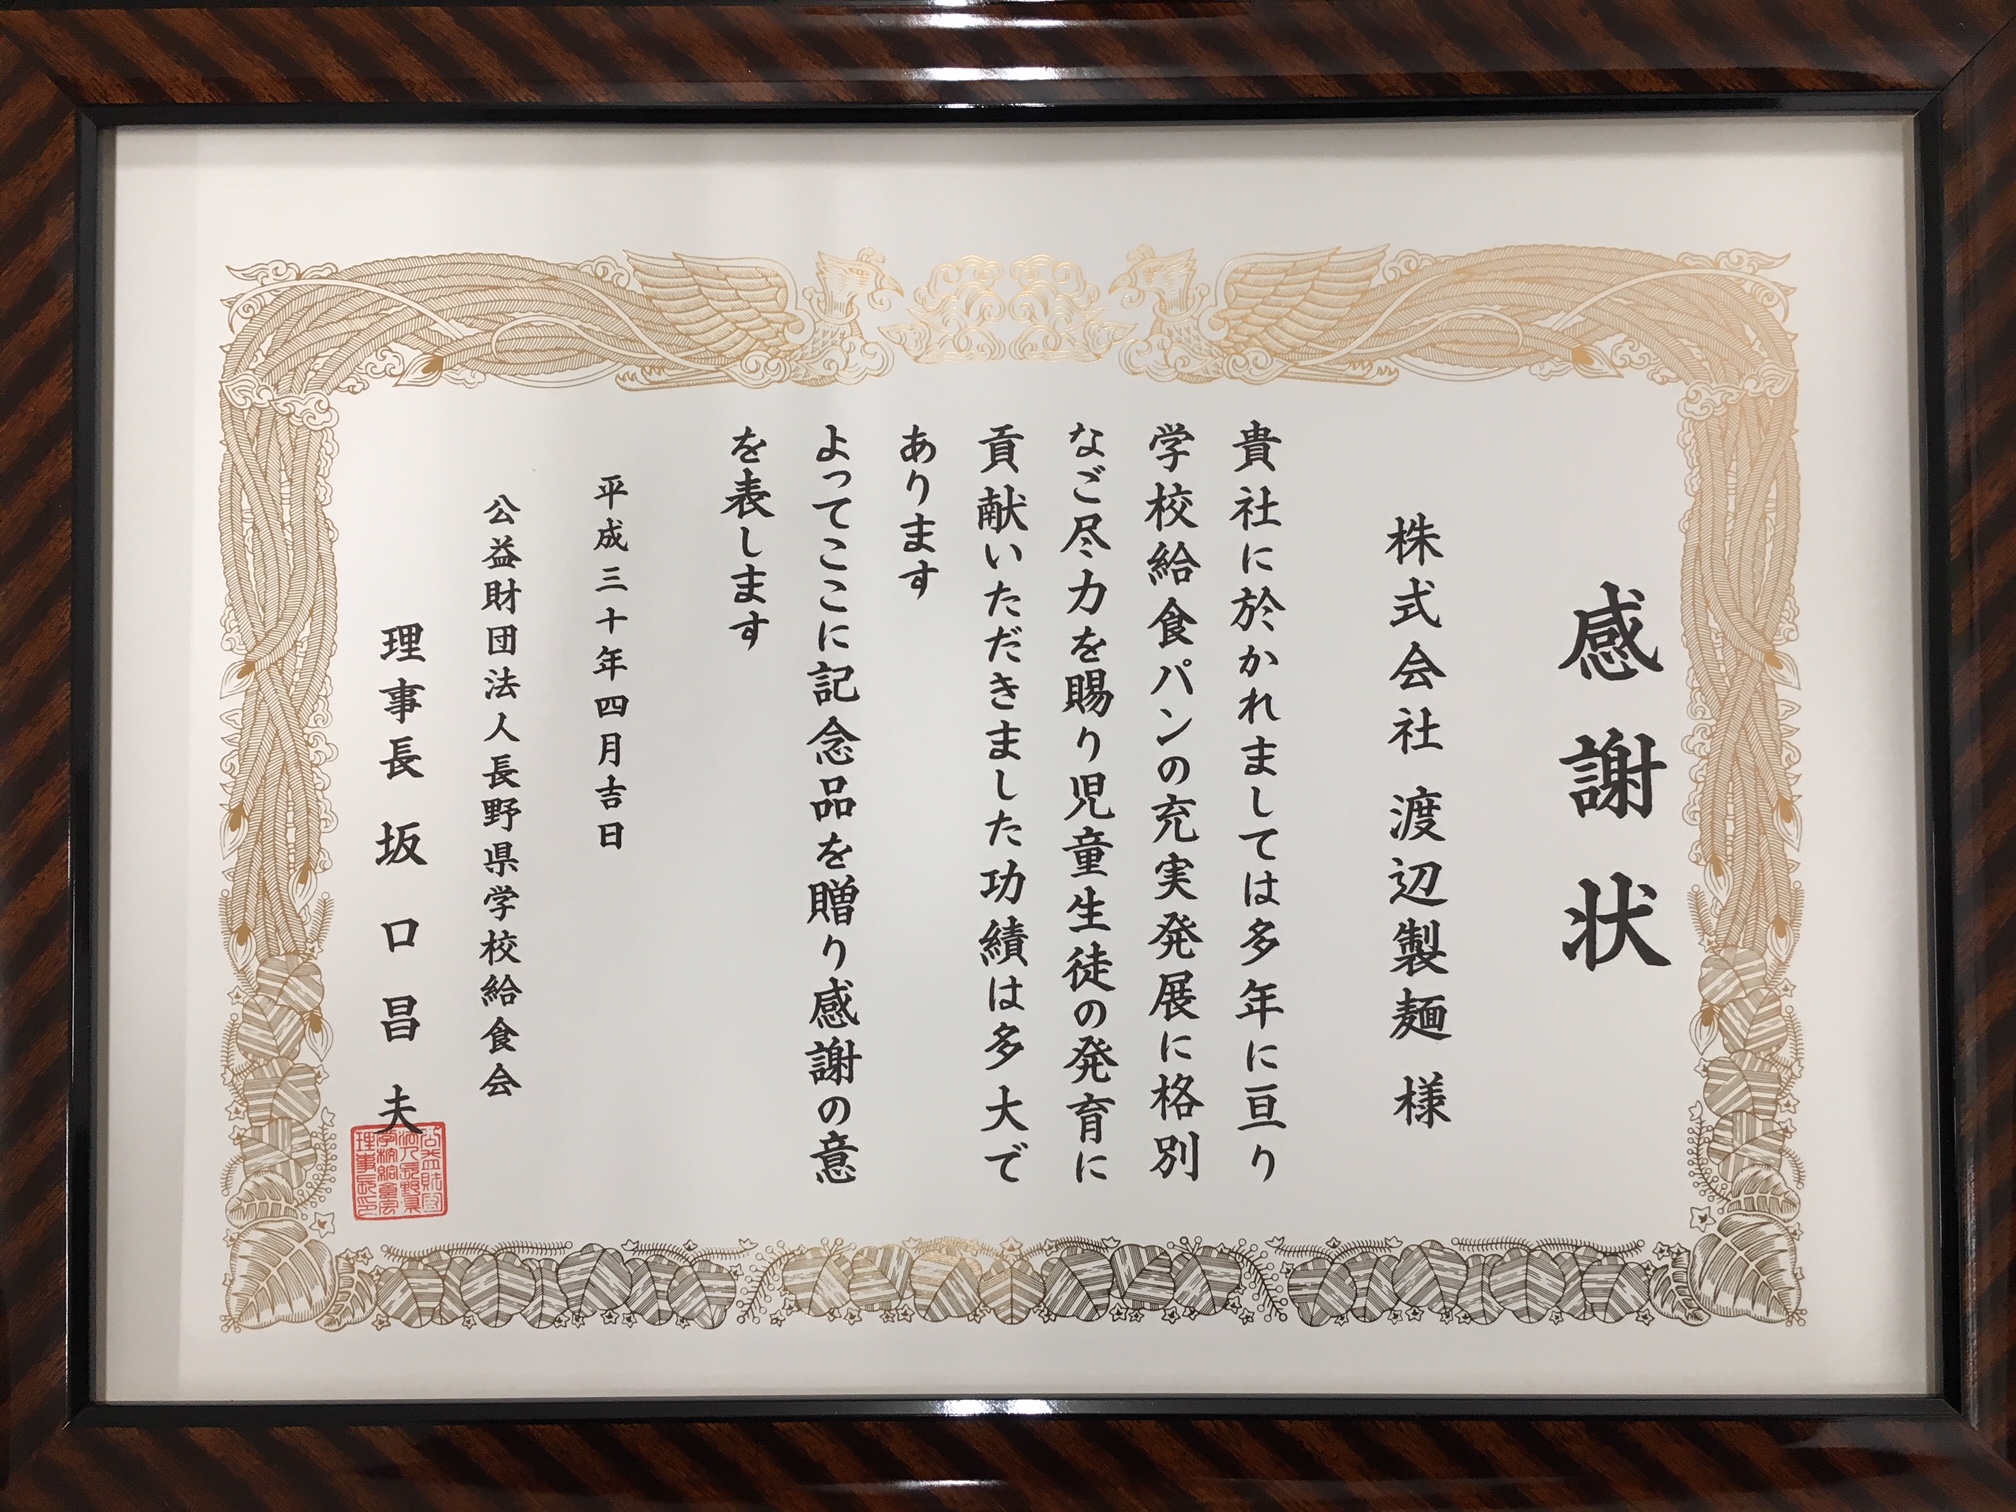 感謝状
株式会社 渡辺製麺 様
貴社に於かれましては多年に亘り
学校給食パンの充実発展に格別
なご尽力を賜り児童生徒の発育に
貢献いただきました功績は多大で
あります
よってここに記念品を贈り感謝の意
を表します
平成三十年四月吉日
公益財団法人長野県学校給食会
理事長 坂口昌夫
公益財団
法人長野県
学校給食会
理事長印